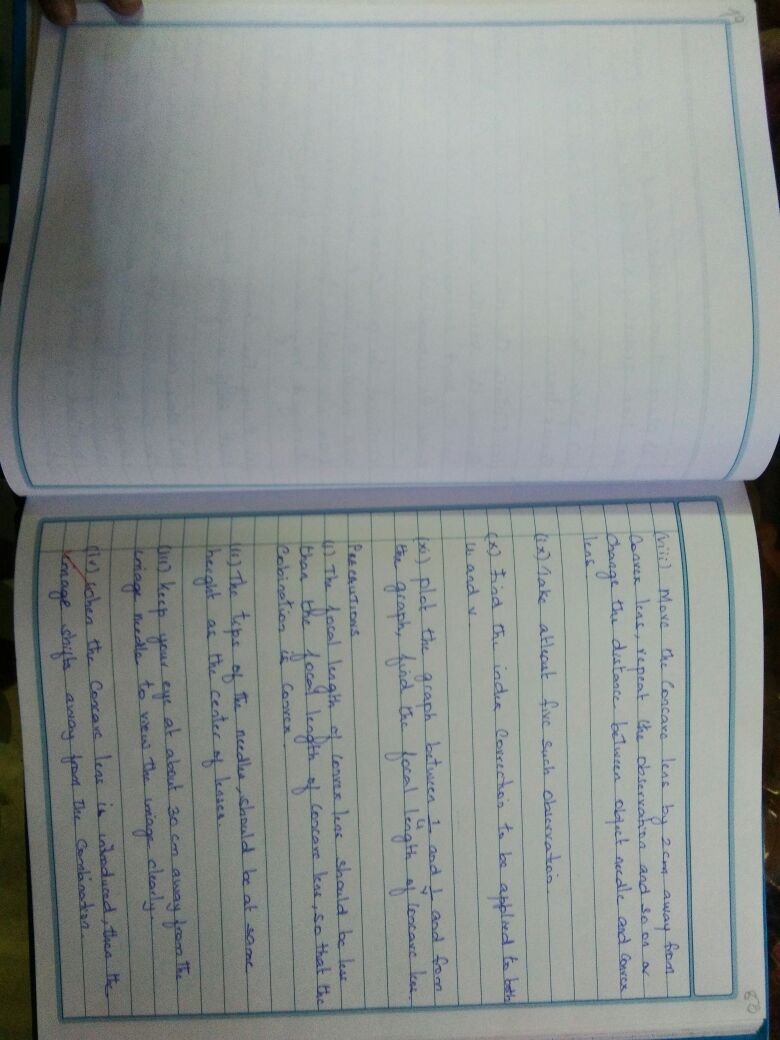 (viii) Move the Concave lens by 2cm away from
Convex lens, repeat the observation and so on or
Change the distance between object needle and Convex
lens.
(ix) Take atleast five such observation.
(x) Find the index Correction to be applied to both
u and v.
(xi) plot the graph between 1/u and 1/v and from
the graph, find the focal length of Concave lens.
Precautions
(i) The focal length of convex lens should be less
than the focal length of Concave lens, so that the
Cobination is Convex.
(ii) The tips of the needles, should be at same
height as the center of lenses.
(iii) keep your eye at about 30 cm away from the
image needle to view the image clearly.
(iv) When the Concave lens is introduced, then the
image shifts away from the Combination.